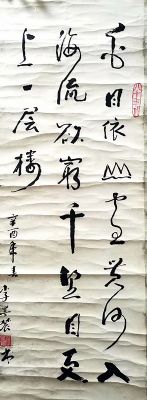 白日依山尽黄河入
海流欲窮千里目更
上一层楼
辛酉年